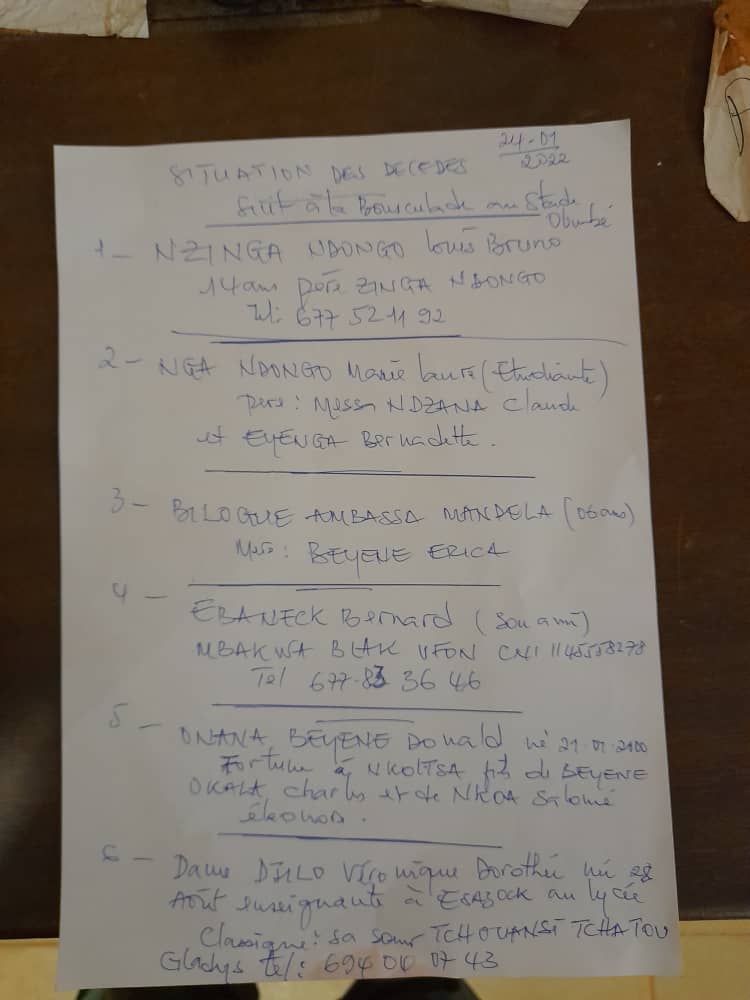 24-01
2022
SITUATION DES DECEDES
suit à la Bousculade au Stade
Olembé
1- NZINGA NDONGO Louis Bruno
14 ans père ZINGA NDONGO
Tel: 677 52 11 92
2- NGA NDONGO Marie Laure (Etudiante)
père: Messa NDZANA Claude
et EYENGA Bernadette.
3- BILOGUE AMBASSA MANDELA (06 ans)
Mère: BEYENE ERICA
4- EBANECK Bernard (Son ami)
MBAKWA BLAK VFON CNI
Tel 677-83 36 46
5- ONANA BEYENE Donald né
Fortune à NKOLTSA fils de BEYENE
OKALA Charles et de NKOA Salomé
6- Dame Véronique Dorothée né 28
Août enseignante à au lycée
Classique: sa sœur TCHOUANSI TCHATOU
Gladys tel: 694 00 07 43